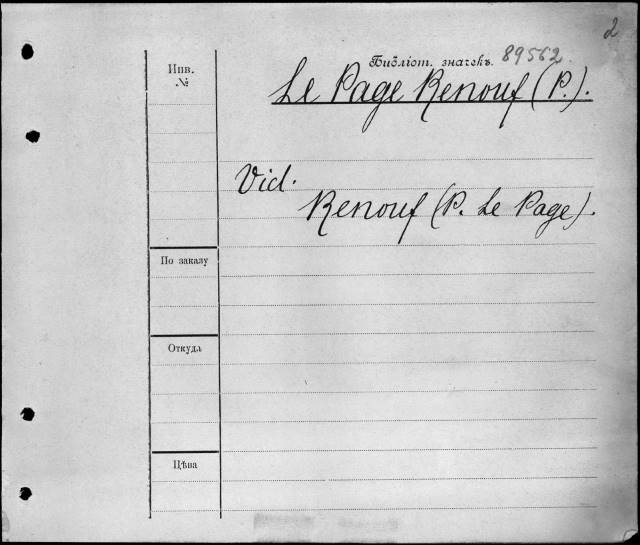 2
Библіот. значекъ. 89562.
Инв.
№
Le Page Renouf (P.).
Vid.
Renouf (P. Le Page).
По заказу
Откуда
Цѣна